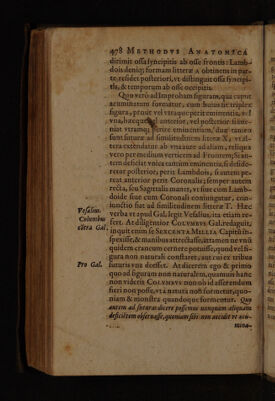 478 METHODVS ANATOMICA
dirimit ossa syncipitis ab osse frontis: Lamb-
dois deniq; formam litteræ Λ obtinens in par-
te residet posteriori, vt distinguit ossa syncipi-
tis, & temporum ab osse occipitis.
Quo verò ad Improbam figuram, qua caput
acuminatum foratur, cum huius sit triplex
figura, prout vel vtraque perit eminentia, vel
vna, hæcque vel anterior, vel posterior: si inte-
riat vtraque eminentia, duæ tantum
sunt suturæ ad similitudinem litteræ X, vel al-
tera extendatur ab vna aure ad aliam, reliqua
vero per medium verticem ad Frontem; Si au-
tem deficiat vnica tantum eminentia, si deside-
retur posterior; perit Lambdois; si autem pe-
reat anterior perit Coronalis; semper autem
recta, seu Sagittalis manet, vt siue cum Lamb-
doide siue cum Coronali coniungitur, con-
iunctio fiat ad similitudinem litteræ T. Hæc
verba vt apud Gal. legit Vesalius, ita etiam re-
fert. At diligentior COLVMBVS Gal. redarguit,
inquit enim se SEXCENTA MILLIA Capitis in-
spexisse, & manibus attrectasse, attamen ne vnū
quidem craneum cernere potuisse, quod vel fi-
gura non naturali constaret, aut cui ex tribus
futuris vna deesset. At dicerem ego & primo
quo ad figuram non naturalem, quamuis hanc
non viderit COLVMBVS non ob id asserendum
fieri non posse, vt à natura non formetur, quo-
niam & monstra quandoque formentur. Quo
autem ad suturas dicere possemus nunquam aliquam
deficientem obseruasse, quoniam sibi non accidit vt acu-
mina-
Vesalius.
Columbus
cōtra Gal.
Pro Gal.